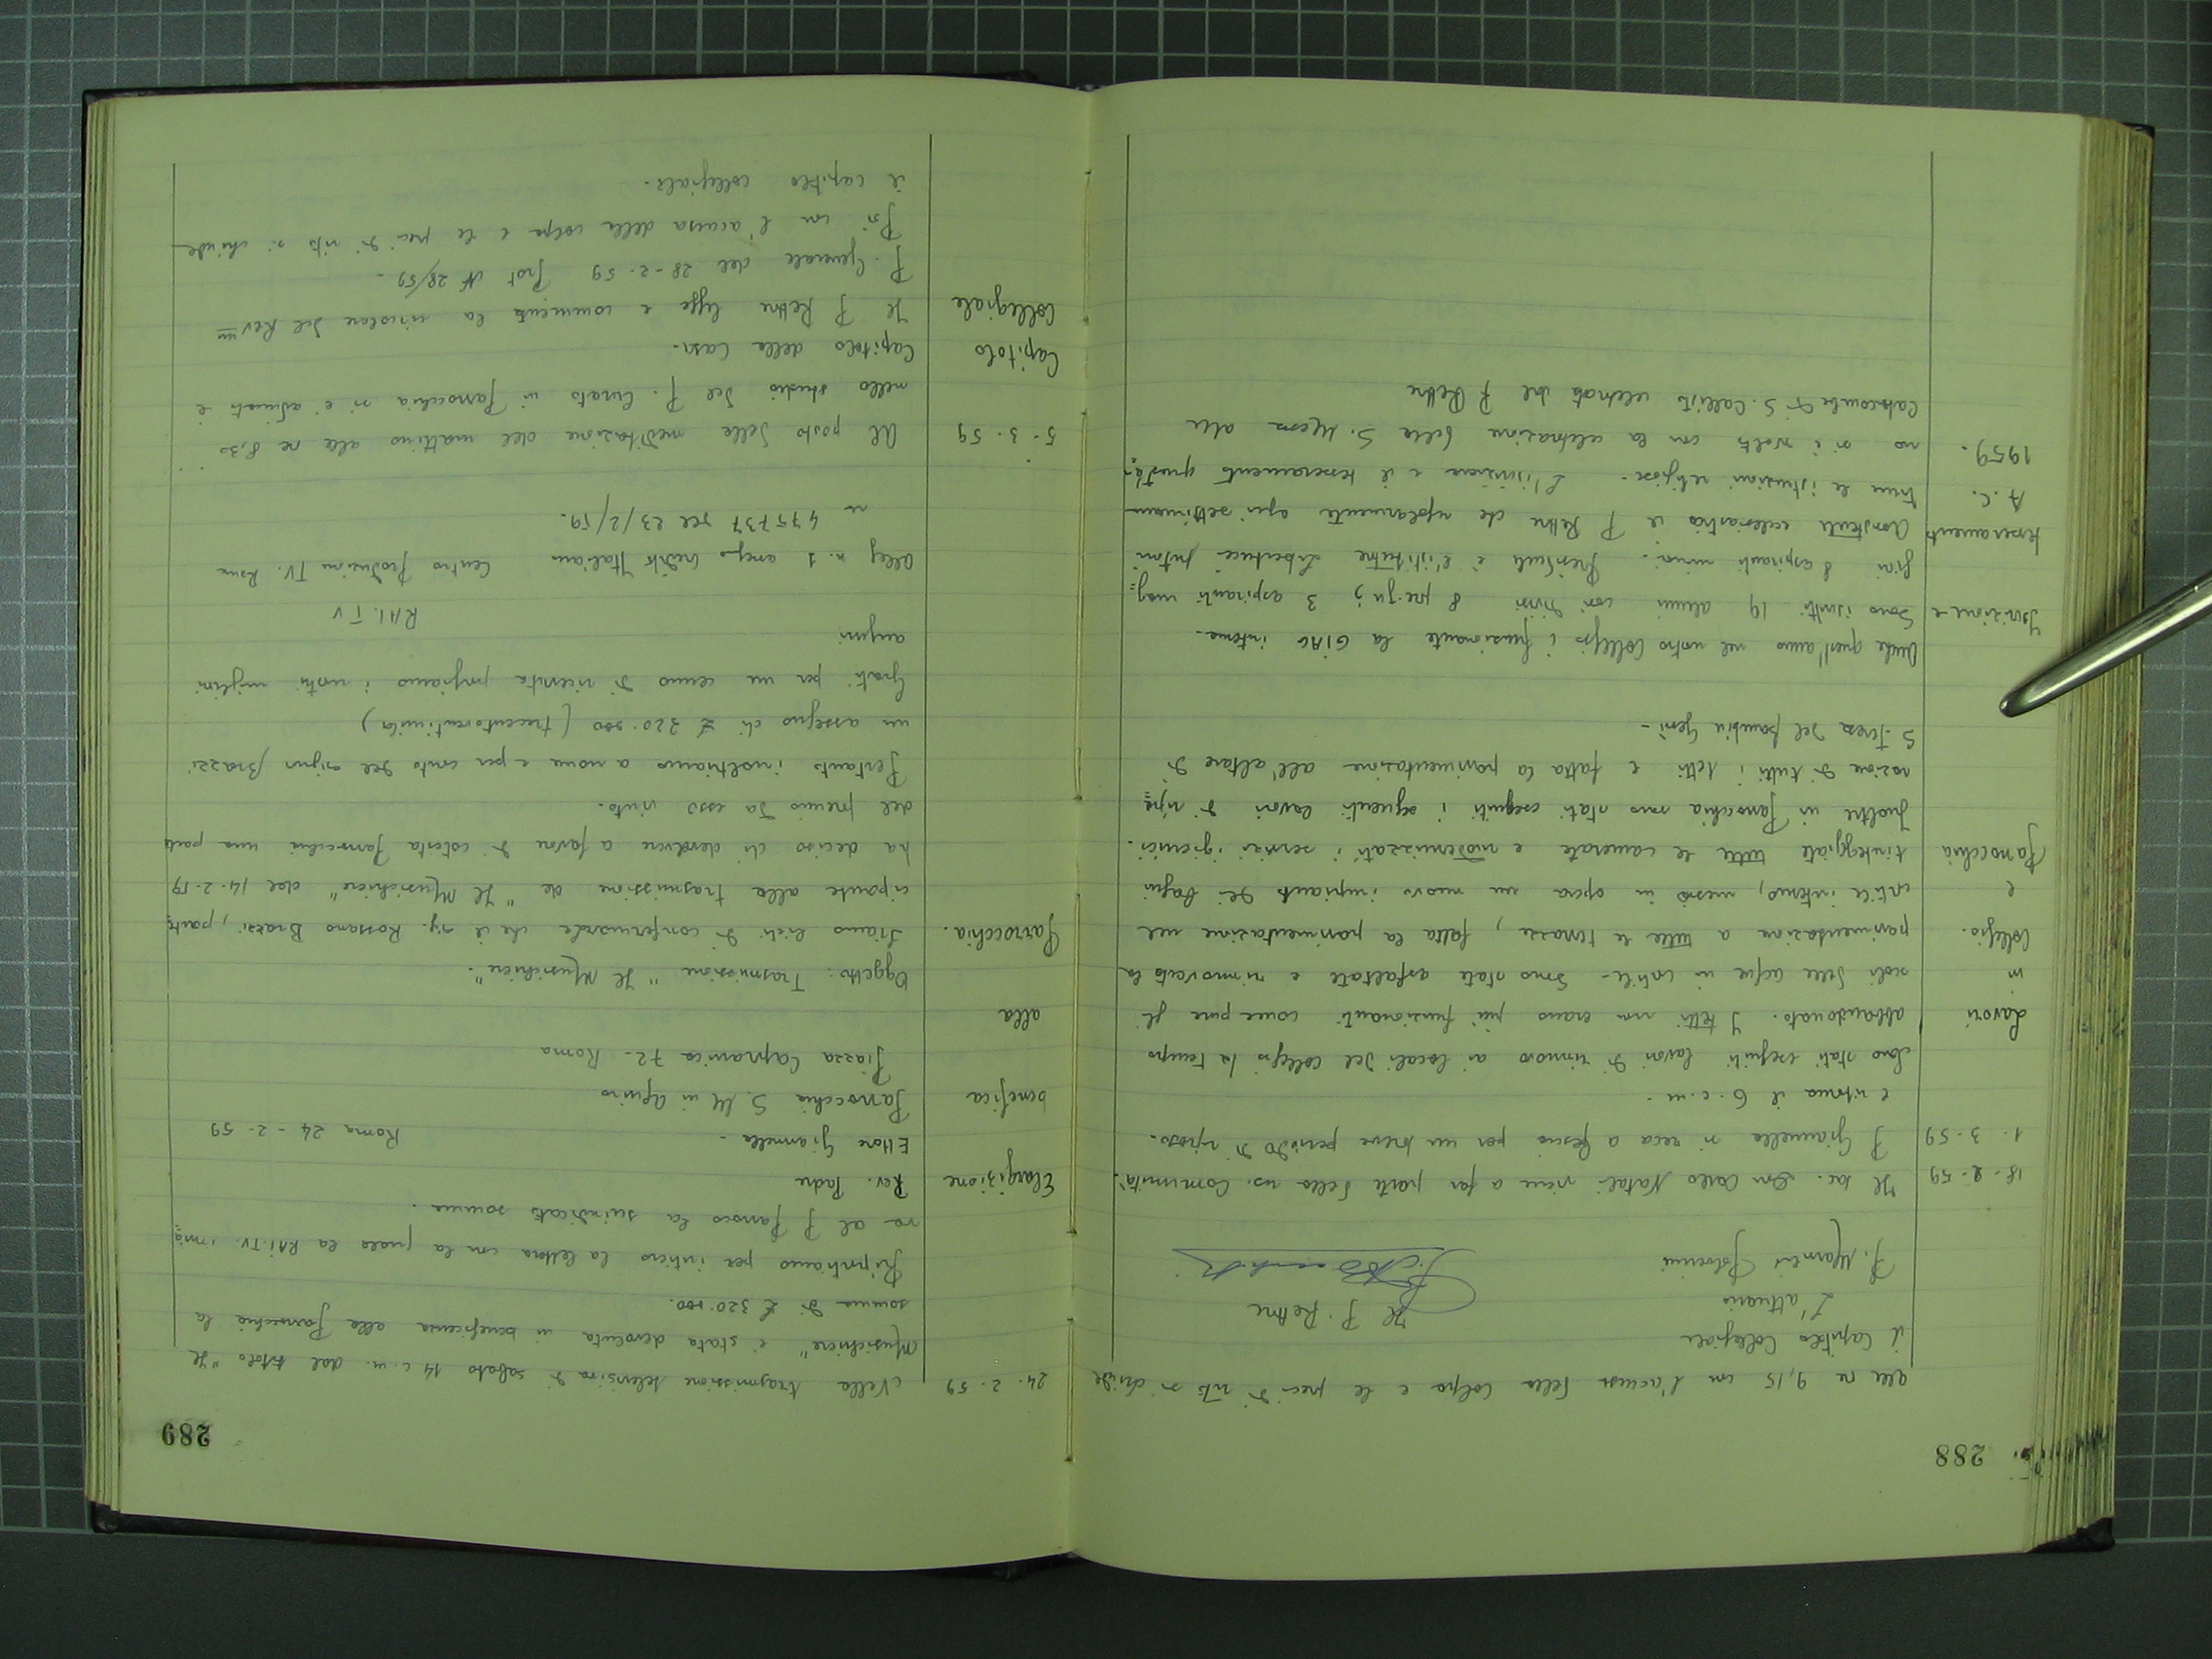 288
alle ore 9,15 con l'accusa della colpa e le preci di rito si chiude
il Capitolo Collegiale
L'attuario
Il P. Rettore
18-2-59 Il sac. Don Carlo Natali viene a far parte della ns. Comunità.
1-3-59 P. Giannella si reca a per un breve periodo di riposo.
e ritorna il 6 c.m.
Sono stati eseguiti lavori di rinnovo ai locali del Collegio da tempo
Lavori abbandonato. I tetti non erano più funzionanti come pure gli
in scoli delle acque in cortile. Sono state asfaltate e rinnovata la
Collegio. pavimentazione a tutte le terrazze, fatta la pavimentazione nel
e cortile interno, messo in opera un nuovo impianto dei bagni
Parrocchia tinteggiate tutte le camerate e modernizzati i servizi igienici.
Inoltre in Parrocchia sono stati eseguiti i seguenti lavori di ripa=
razione di tutti i tetti e fatta la pavimentazione all'altare di
S. Teresa del Bambin Gesù-
Anche quest'anno nel nostro Collegio è funzionante la GIAC interna.
Iscrizione e Sono iscritti 19 alunni così divisi 8 pre-Ju; 3 aspiranti mag=
tesseramento giori 8 aspiranti minori. Presidente è l'istitutore
A.C. Assistente ecclesiastico il P. Rettore che regolarmente ogni settimana
1959. tiene le istruzioni religiose. L'iscrizione e il tesseramento quest'an=
no si è svolto con la celebrazione della S. Messa alle
Catacombe di S. Callisto celebrata dal P. Rettore
289
24-2-59 Nella trasmissione televisiva di sabato 14 c.m. dal titolo "Il
Musichiere" è stata devoluta in beneficenza alla Parrocchia la
somma di £ 320.000.
Riportiamo per intiero la lettera con la quale la RAI.TV. invia=
va al P. Parroco la suindicata somma.
Elargizione Rev. Padre
Ettore Giannella - Roma 24-2-59
benefica Parrocchia S. M. in Aquiro
Piazza Capranica 72- Roma
alla
Oggetto: Trasmissione "Il Musichiere".
Parrocchia. Siamo lieti di confermarle che il sig. Rossano Brazzi, parte=
cipante alla trasmissione de "Il Musichiere" del 14-2-59
ha deciso di devolvere a favore di codesta Parrocchia una parte
del premio da esso vinto.
Pertanto inoltriamo a nome e per conto del signor Brazzi
un assegno di £ 320.000 (trecentoventimila)
Grati per un cenno di ricevuta porgiamo i nostri migliori
auguri
RAI. TV
Alleg n. 1 assegno Credito Italiano Centro Produzione TV. Roma
n 475737 del 23/2/59.
5-3-59 Al posto della meditazione del mattino alle ore 8,30
nello studio del P. Curato in Parrocchia si è adunato il
Capitolo Capitolo della Casa.
Collegiale Il P. Rettore legge e commenta la circolare del Rev.mo
P. Generale del 28-2-59 Prot N 28/59.
Poi con l'accusa della colpa e le preci di rito si chiude
il capitolo collegiale.